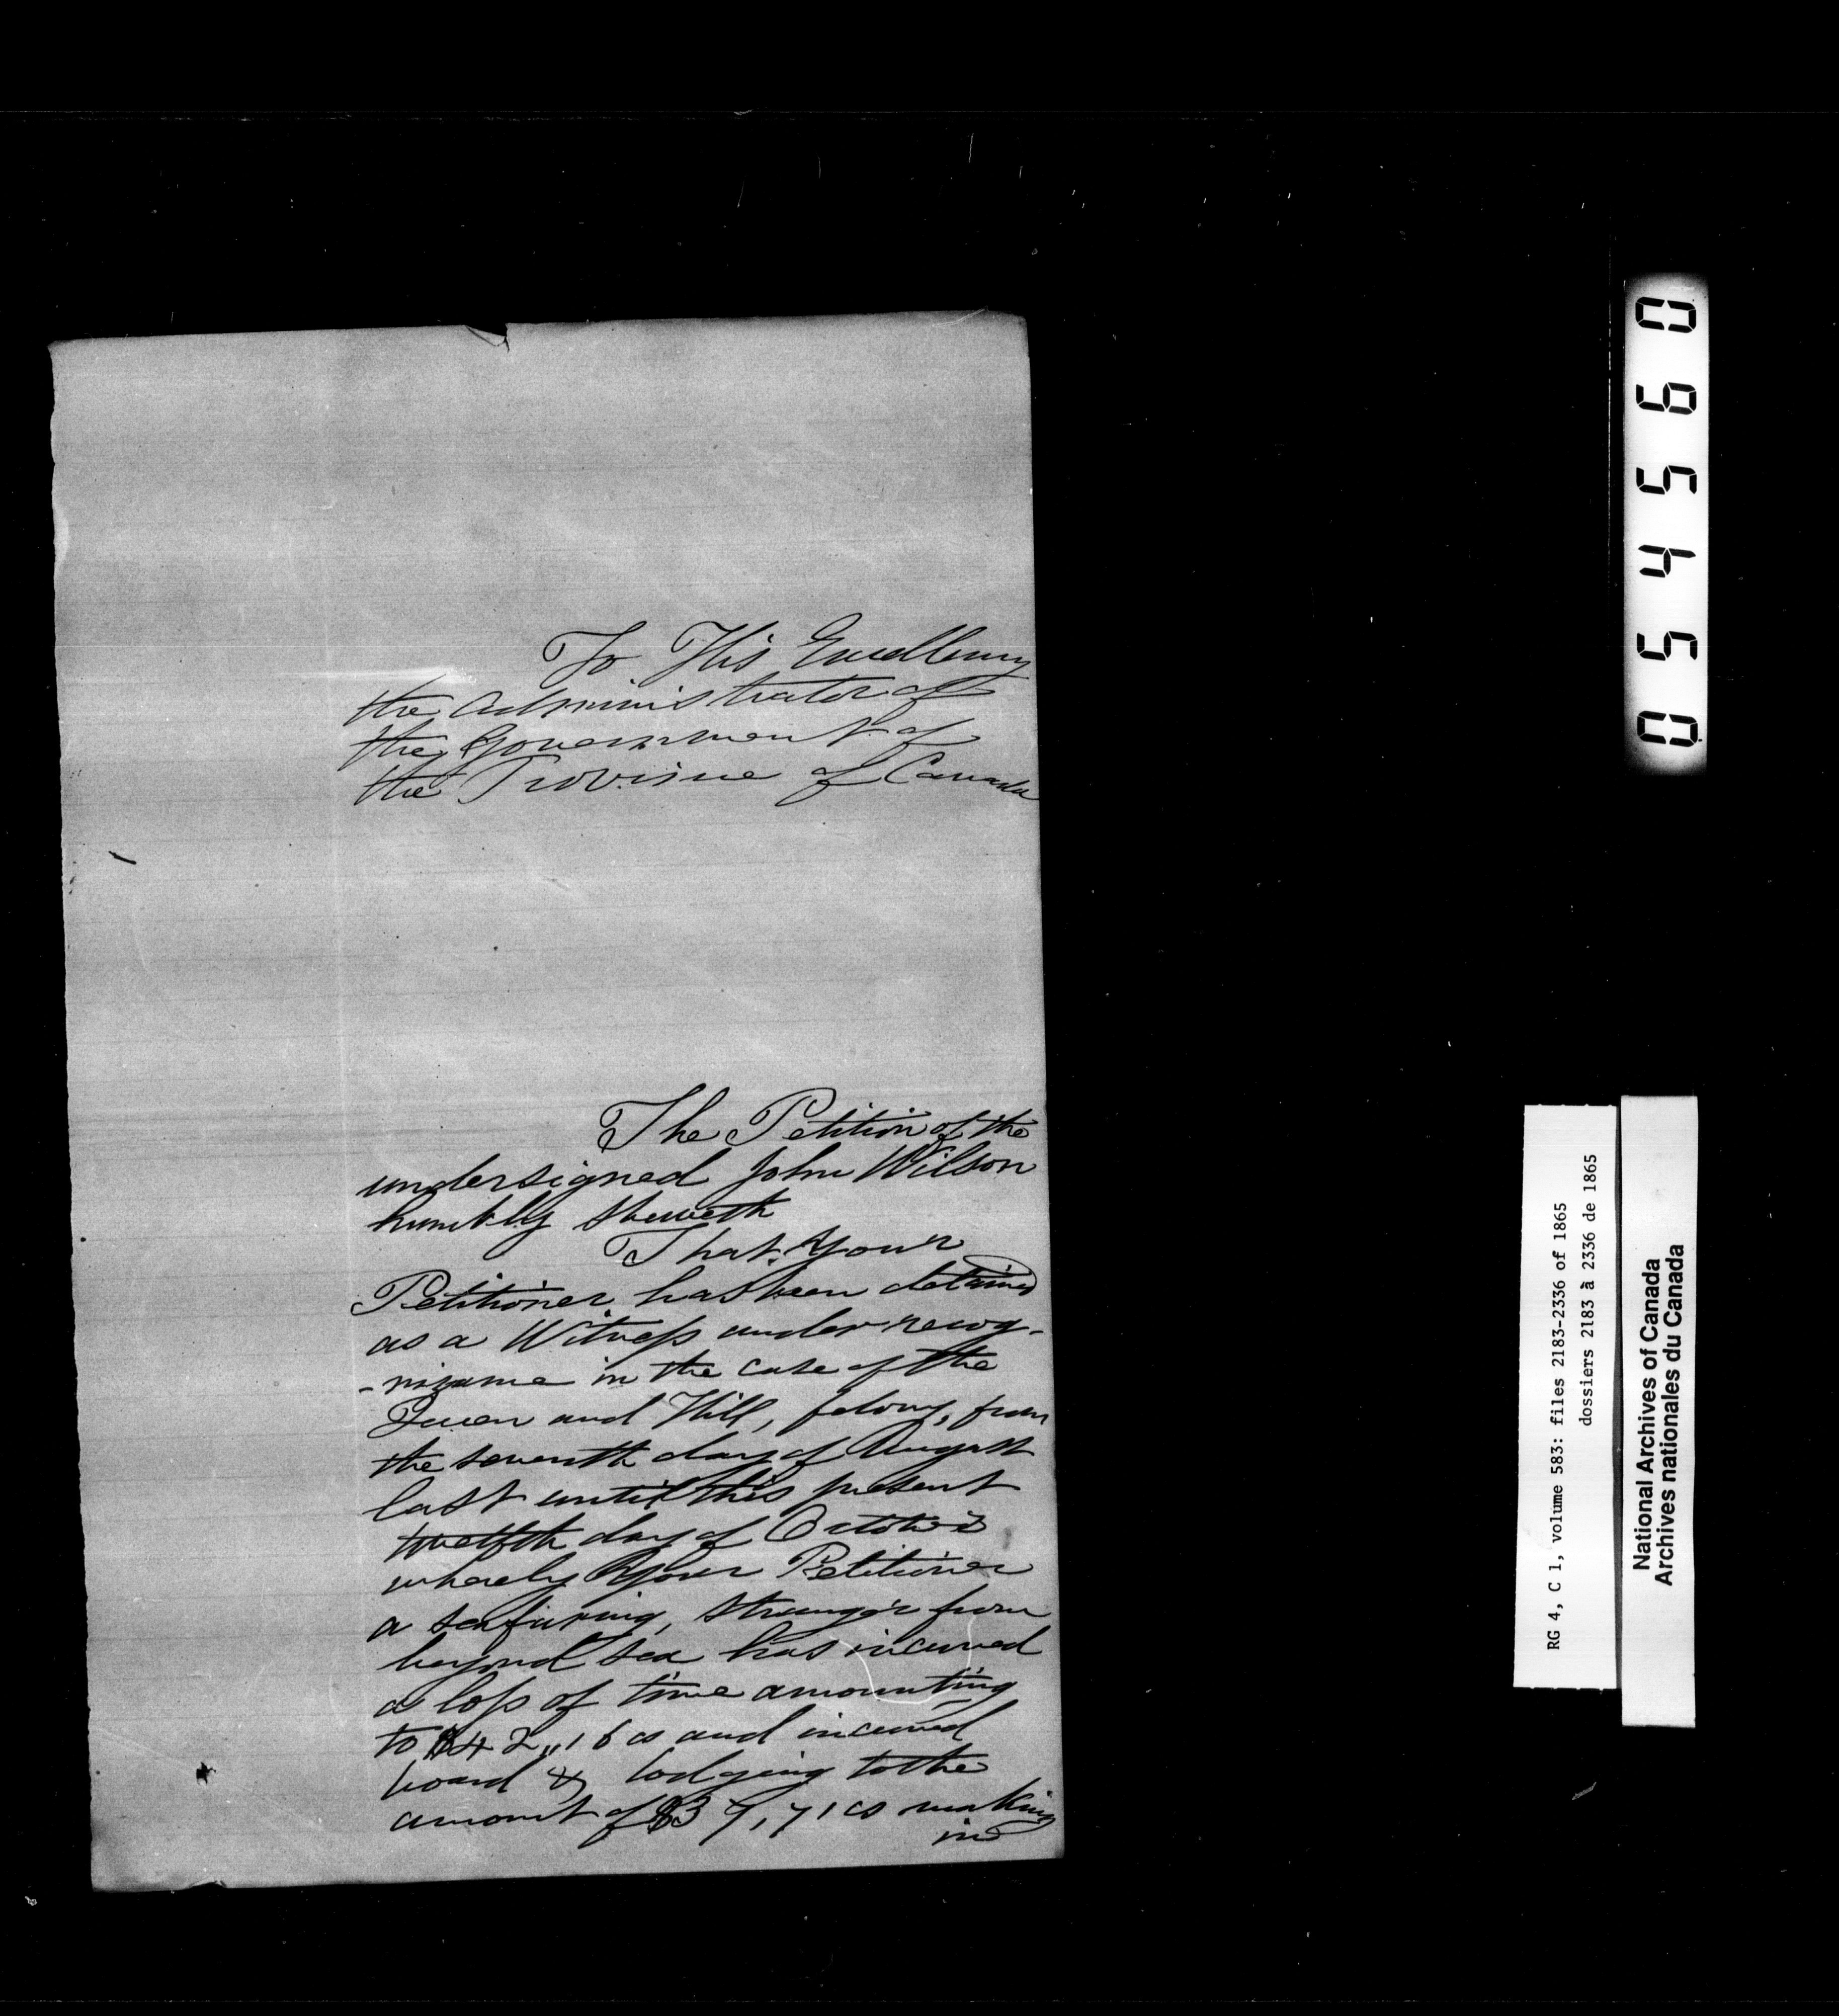 To His Excellency
the Administrator of
the Government of
the Province of Canada
The Petition of the
undersigned John Wilson
humbly sheweth
That Your
Petitioner has been detained
as a Witness under recog-
-nizance in the case of the
Queen and Hill, felony, from
the seventh day of August
last until this present
twelfth day of October
whereby Your Petitioner
a seafaring, stranger from
beyond sea has incurred
a loss of time amounting
to $42,,16 cs and incurred
board & lodging to the
amount of $37,71 cs making
in
054560
RG 4, C 1, volume 583: files 2183-2336 of 1865
dossiers 2183 à 2336 de 1865
National Archives of Canada
Archives nationales du Canada